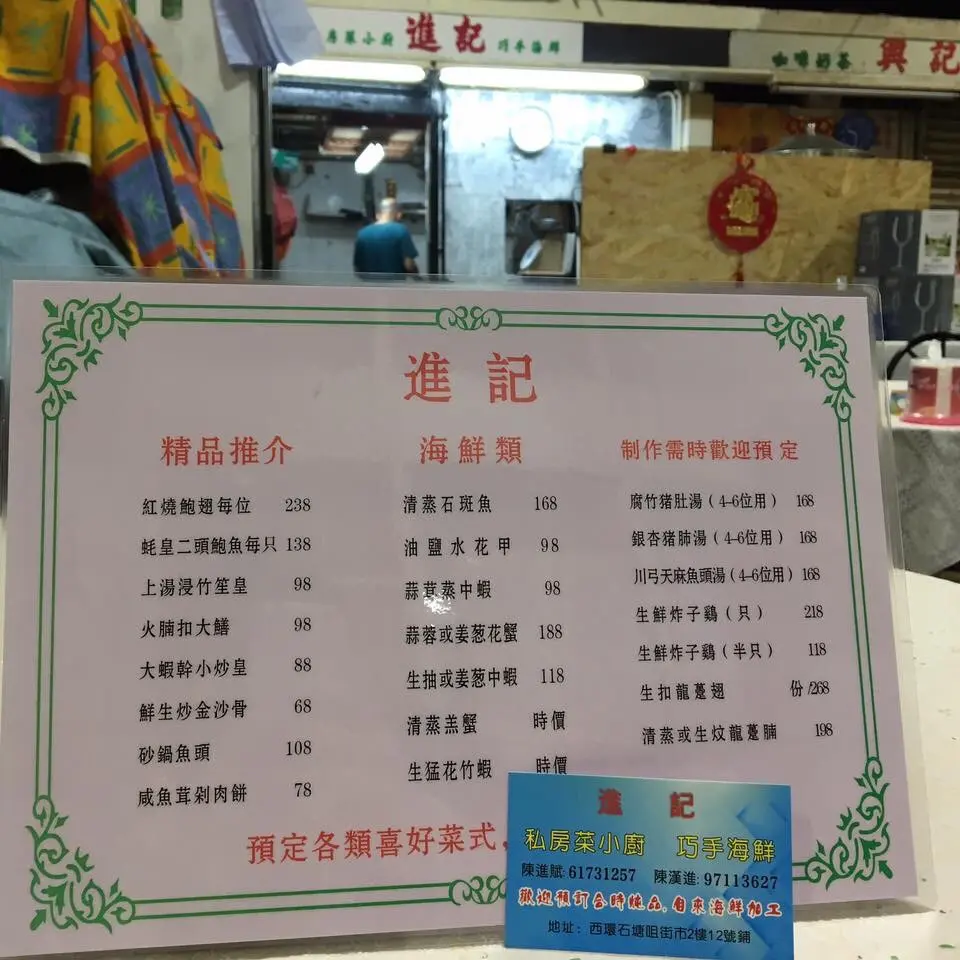 房菜小廚 進記 巧手海鮮
咖啡奶茶 興記
進記
精品推介
紅燒鮑翅每位 238
蚝皇二頭鮑魚每只 138
上湯浸竹笙皇 98
火腩扣大鱔 98
大蝦幹小炒皇 88
鮮生炒金沙骨 68
砂鍋魚頭 108
咸魚茸剁肉餅 78
海鮮類
清蒸石斑魚 168
油鹽水花甲 98
蒜茸蒸中蝦 98
蒜蓉或姜葱花蟹 188
生抽或姜葱中蝦 118
清蒸羔蟹 時價
生猛花竹蝦 時價
制作需時歡迎預定
腐竹猪肚湯（4-6位用） 168
銀杏猪肺湯（4-6位用） 168
川弓天麻魚頭湯（4-6位用） 168
生鮮炸子鷄（只） 218
生鮮炸子鷄（半只） 118
生扣龍躉翅 份/268
清蒸或生炆龍躉腩 198
預定各類喜好菜式，
進記
私房菜小廚 巧手海鮮
陳進賦:61731257 陳漢進:97113627
歡迎預訂合時炖品,自來海鮮加工
地址：西環石塘咀街市2樓12號鋪